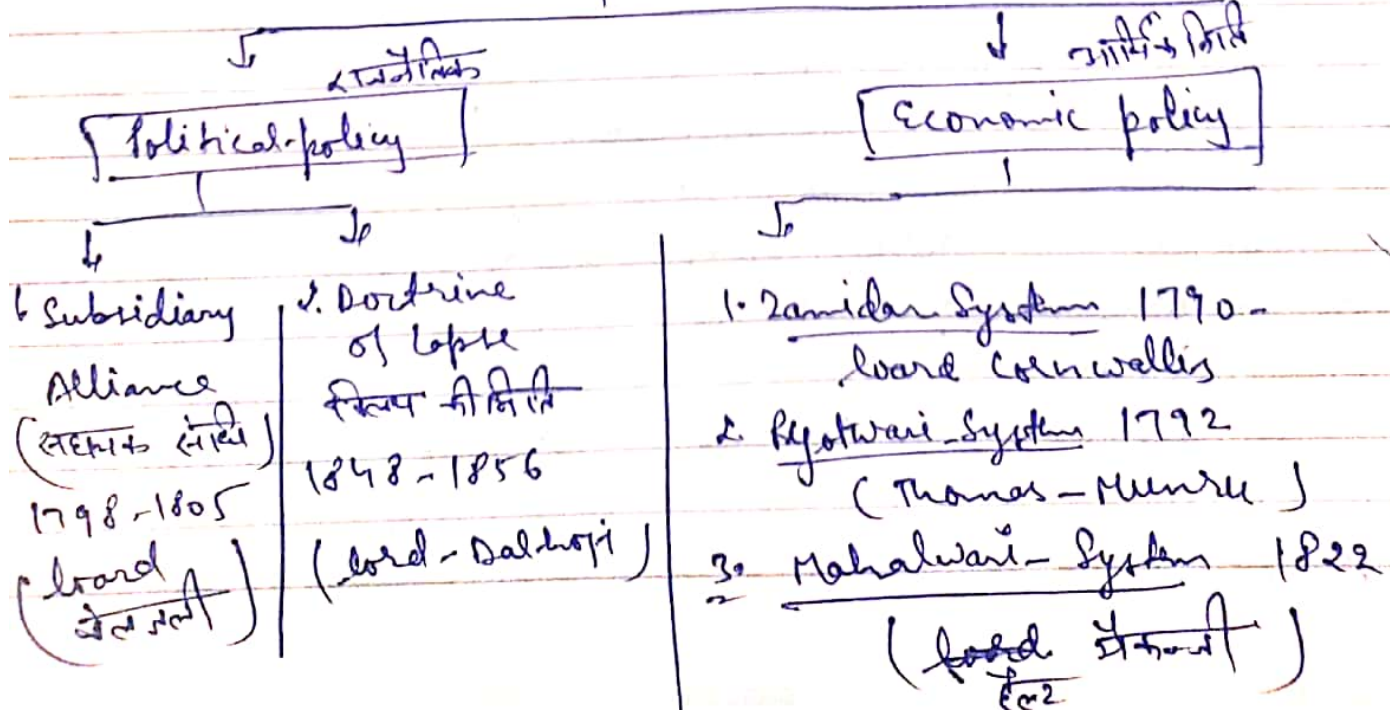 राजनैतिक
Political-policy
आर्थिक निति
Economic policy
1. Subsidiary
Alliance
(सहायक संधि)
1798-1805
(Loard
वेलजली)
2. Doctrine
of lapse
विलय की निति
1848-1856
(Lord-Dalhoji)
1. Zamidar System 1790-
Loard Cornwallis
2. Ryotwari-System 1792
(Thomas-Munru)
3. Mahalwari-System 1822
(मैकेन्जी)